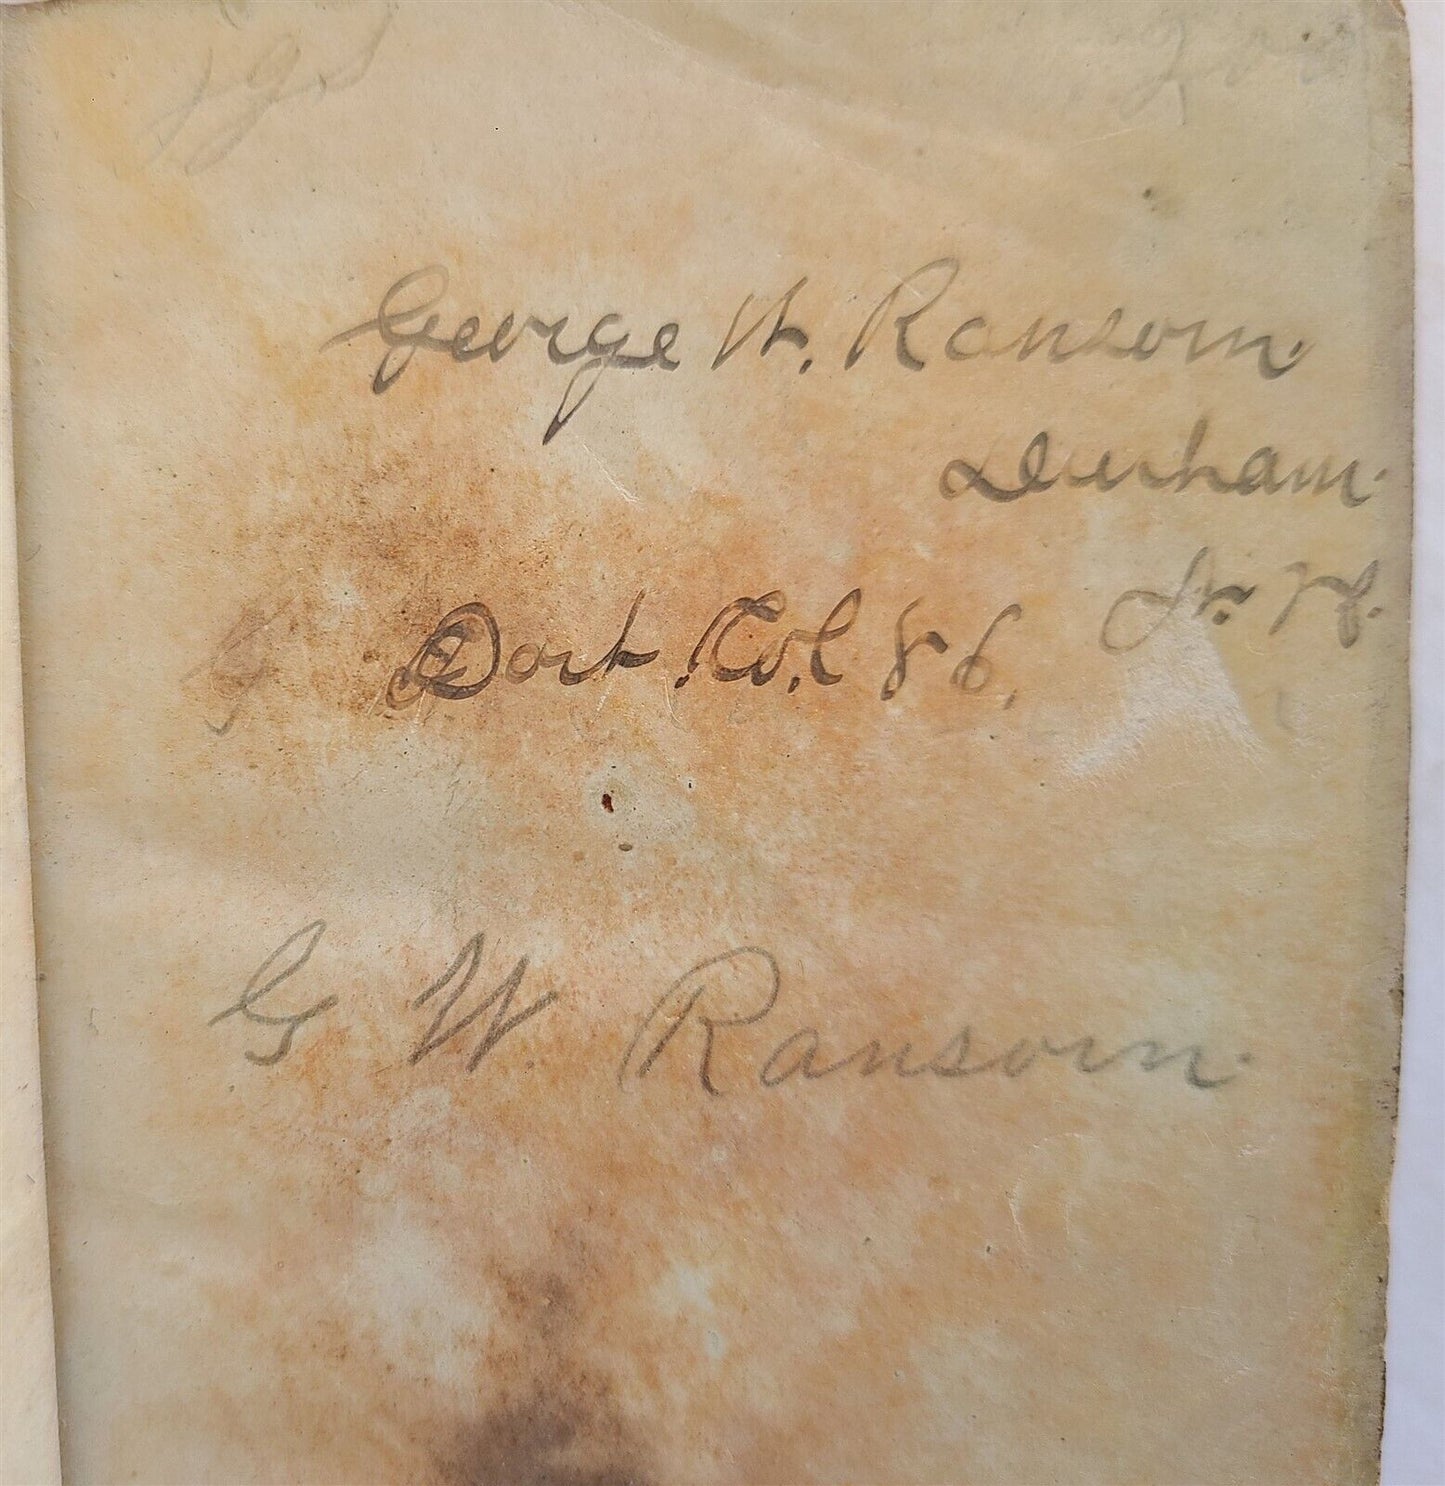 George W. Ransom.
Durham.
N. H.
Dart. Col 86.
G W. Ransom.